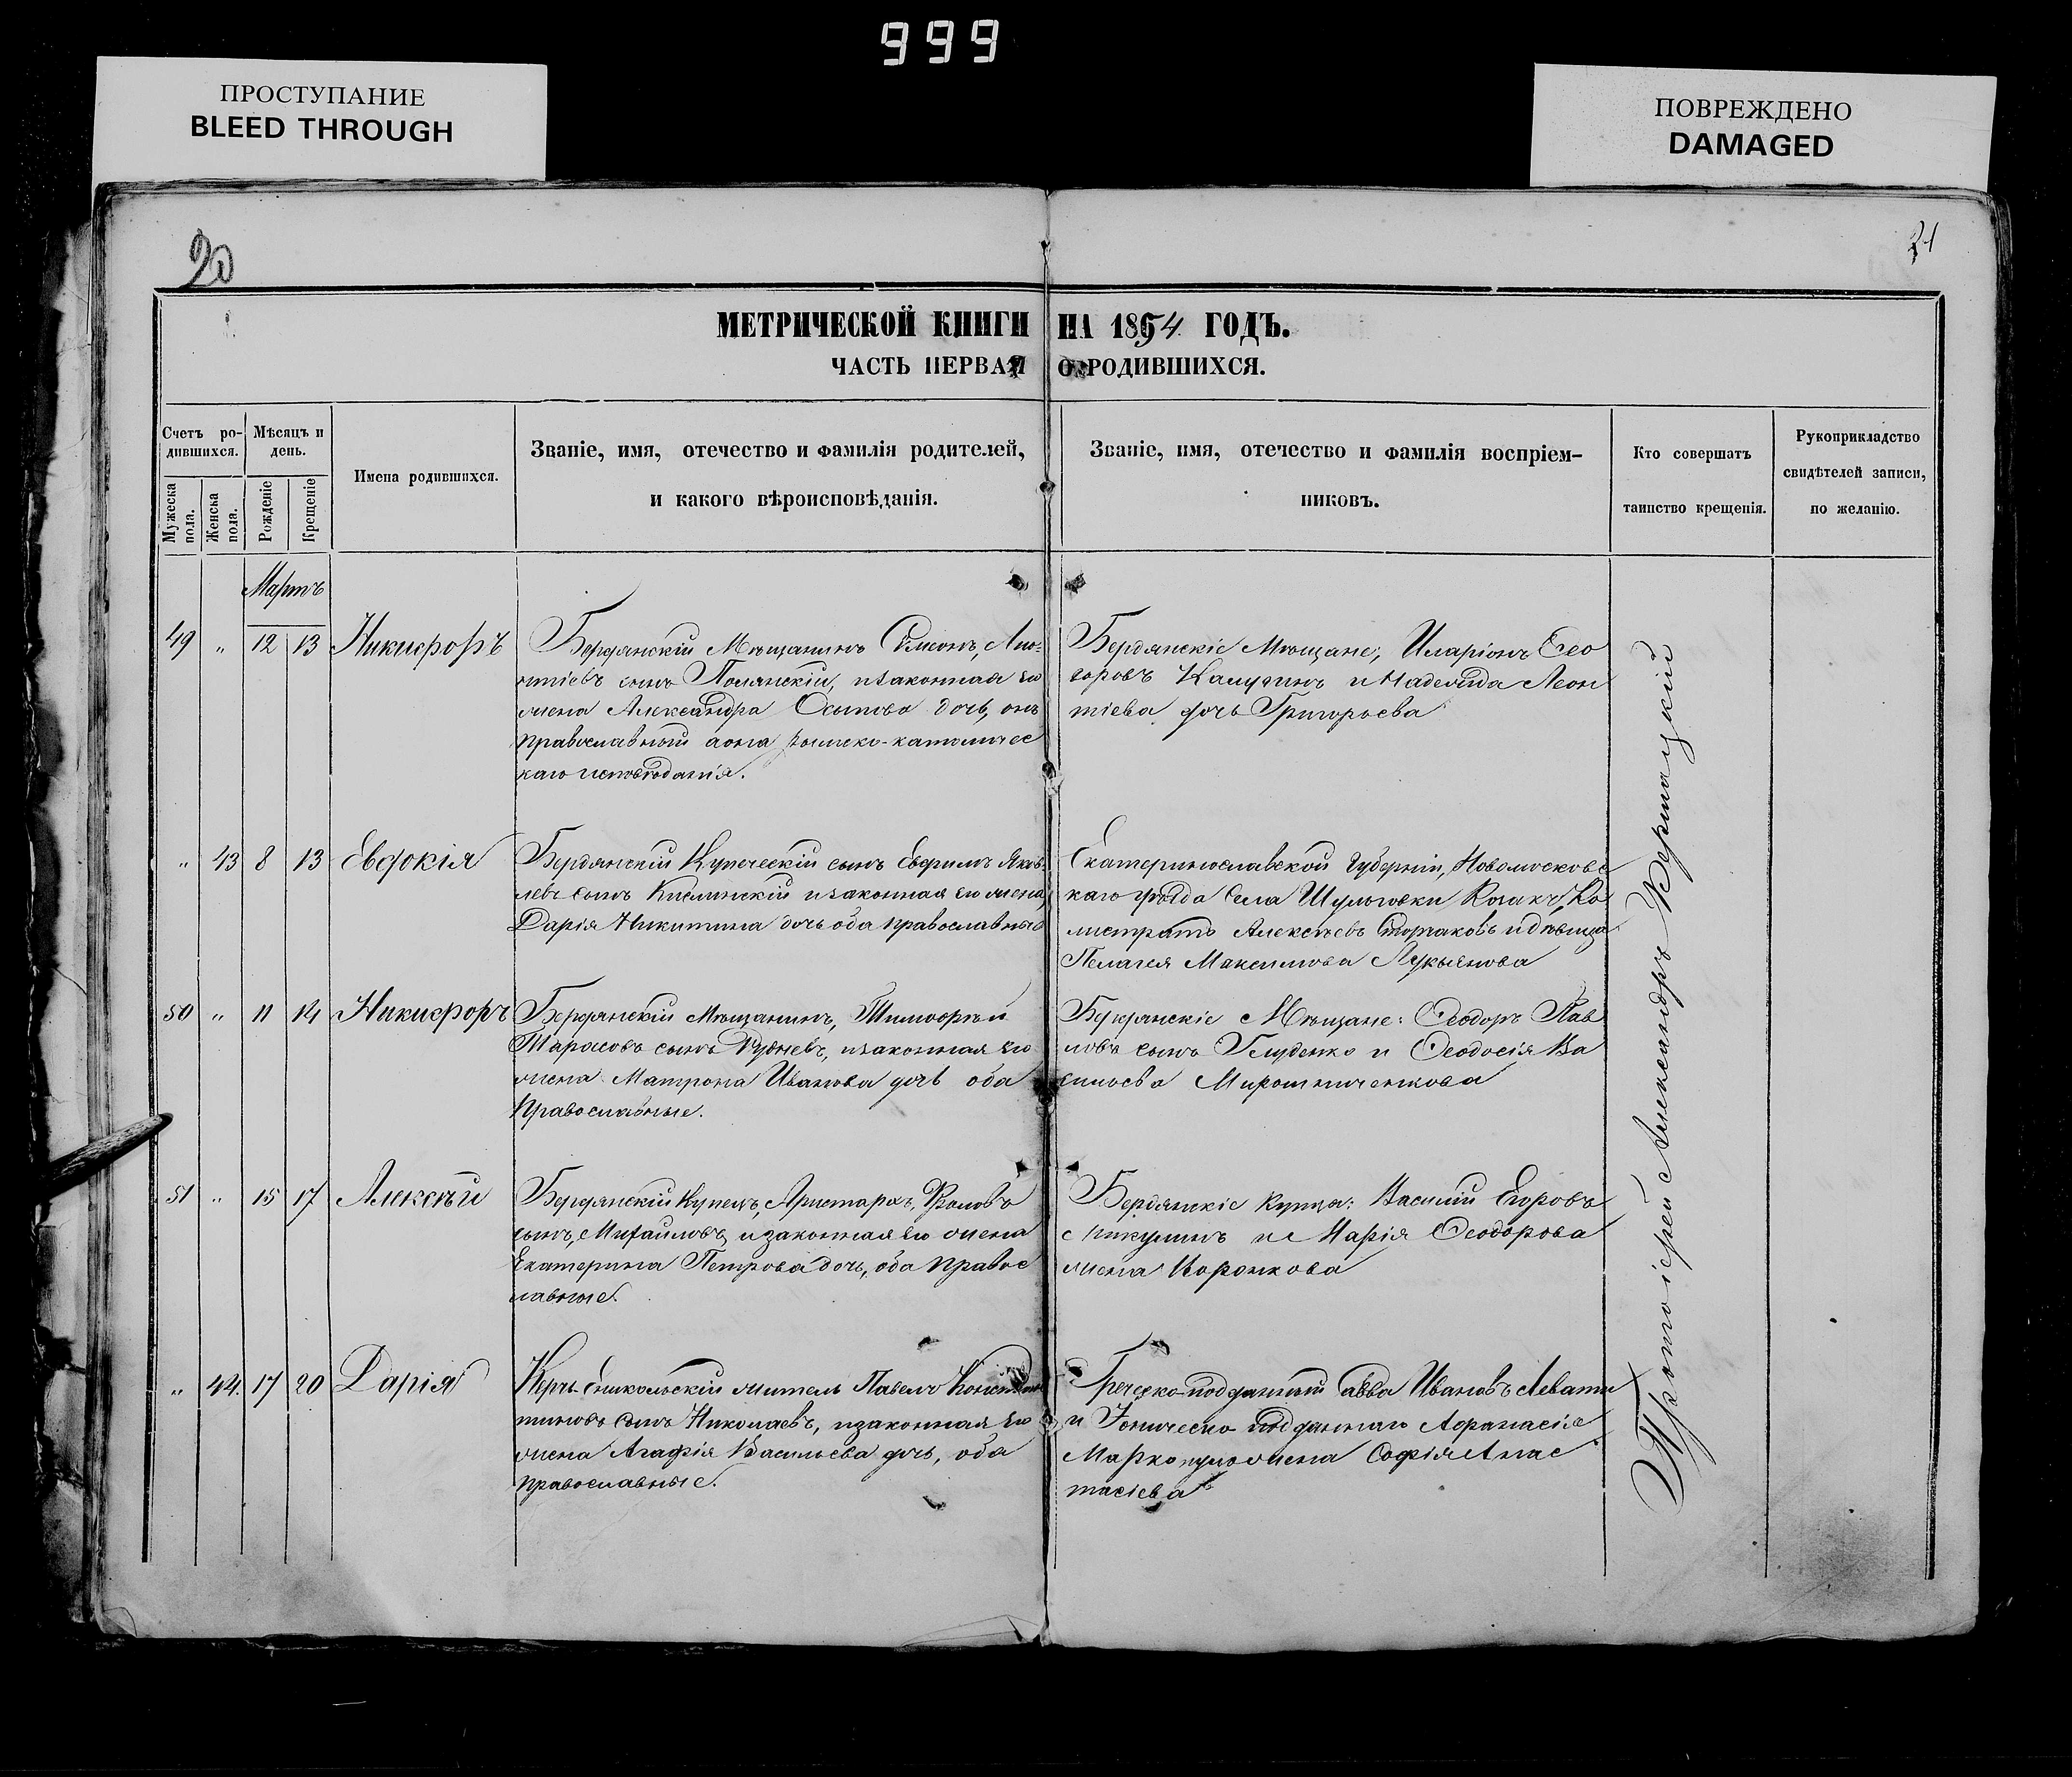 999
ПРОСТУПАНИЕ
BLEED THROUGH
ПОВРЕЖДЕНО
DAMAGED
20
21
МЕТРИЧЕСКОЙ КНИГИ НА 1854 ГОДЪ.
ЧАСТЬ ПЕРВАЯ О РОДИВШИХСЯ.
Счетъ ро-
дившихся.
Мужеска
пола.
Женска
пола.
Мѣсяцъ и
день.
Рожденіе
Крещеніе
Имена родившихся.
Званіе, имя, отечество и фамилія родителей,
и какого вѣроисповѣданія.
Званіе, имя, отечество и фамилія воспріем-
никовъ.
Кто совершатъ
таинство крещенія.
Рукоприкладство
свидѣтелей записи,
по желанію.
Мартъ
49 „ 12 13 Никифоръ
Бердянскій Мѣщанинъ Симеонъ, Лео-
нтіевъ сынъ Полянскій, и законная его
жена Александра Осипова дочь, онъ
православный а она римско-католичес
каго исповѣданія.
Бердянскіе Мѣщане; Иларіонъ Ѳео
доровъ Калугинъ и Надежда Леон
тіева дочь Григорьева
„ 43 8 13 Евдокія
Бердянскій Купеческій сынъ Ефимъ Яков-
левъ сынъ Кислинскій и законная его жена,
Дарія Никитина дочь оба православные
Екатеринославской Губерніи, Новомосковс
каго уѣзда Села Шульговки Козакъ, Ка
листратъ Алексѣевъ Сторчаковъ и дѣвица
Пелагея Максимова Лукьянова
50 „ 11 14 Никифоръ
Бердянскій Мѣщанинъ, Тимофѣй
Тарасовъ сынъ Рудневъ, и законная его
жена Матрона Иванова дочь оба
Православные.
Бердянскіе Мѣщане: Ѳеодоръ Пав
ловъ сынъ Глуденко и Ѳеодосія Ва
сильева Мирошниченкова
51 „ 15 17 Алексѣй
Бердянскій Купецъ, Аристархъ, Фроловъ
сынъ, Михайловъ, и законная его жена
Екатерина Петрова дочь, оба Правос
лавные.
Бердянскіе Купцы: Василій Егоровъ
Никулинъ и Марія Ѳеодорова
жена Воронкова
„ 44. 17 20 Дарія
Керчь Еникольскій житель Павелъ Констан
тиновъ сынъ Николаевъ, и законная его
жена Агафія Васильева дочь, оба
православные.
Греческо-подданный Савва Ивановъ Левати
и Іоническо подданнаго Афанасія
Маркопуло жена Софія Анас
тасіева
Протоіерей Александръ Кершацкій